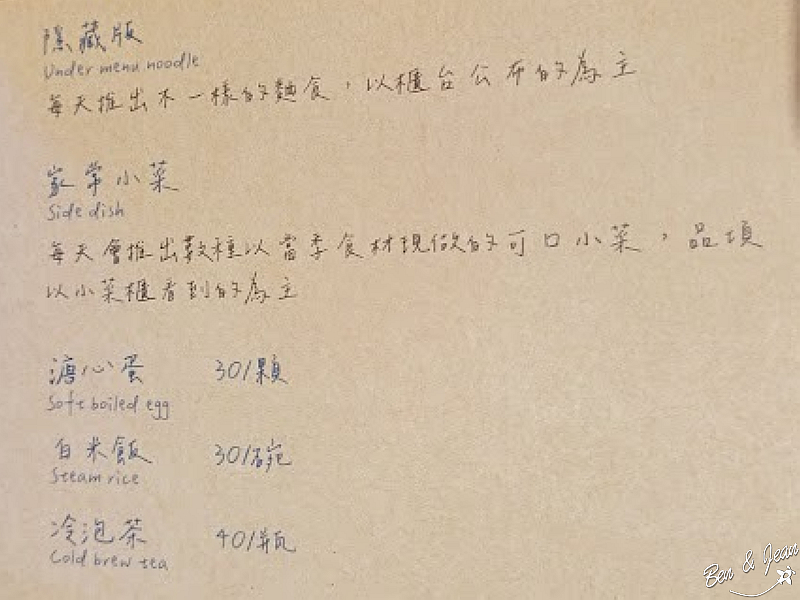 隱藏版
Under menu noodle
每天推出不一樣的麵食，以櫃台公布的為主
家常小菜
Side dish
每天會推出數種以當季食材現做的可口小菜，品項
以小菜櫃看到的為主
溏心蛋 30/顆
Soft boiled egg
白米飯 30/碗
Steam rice
冷泡茶 40/瓶
Cold brew tea
Ben & Jean